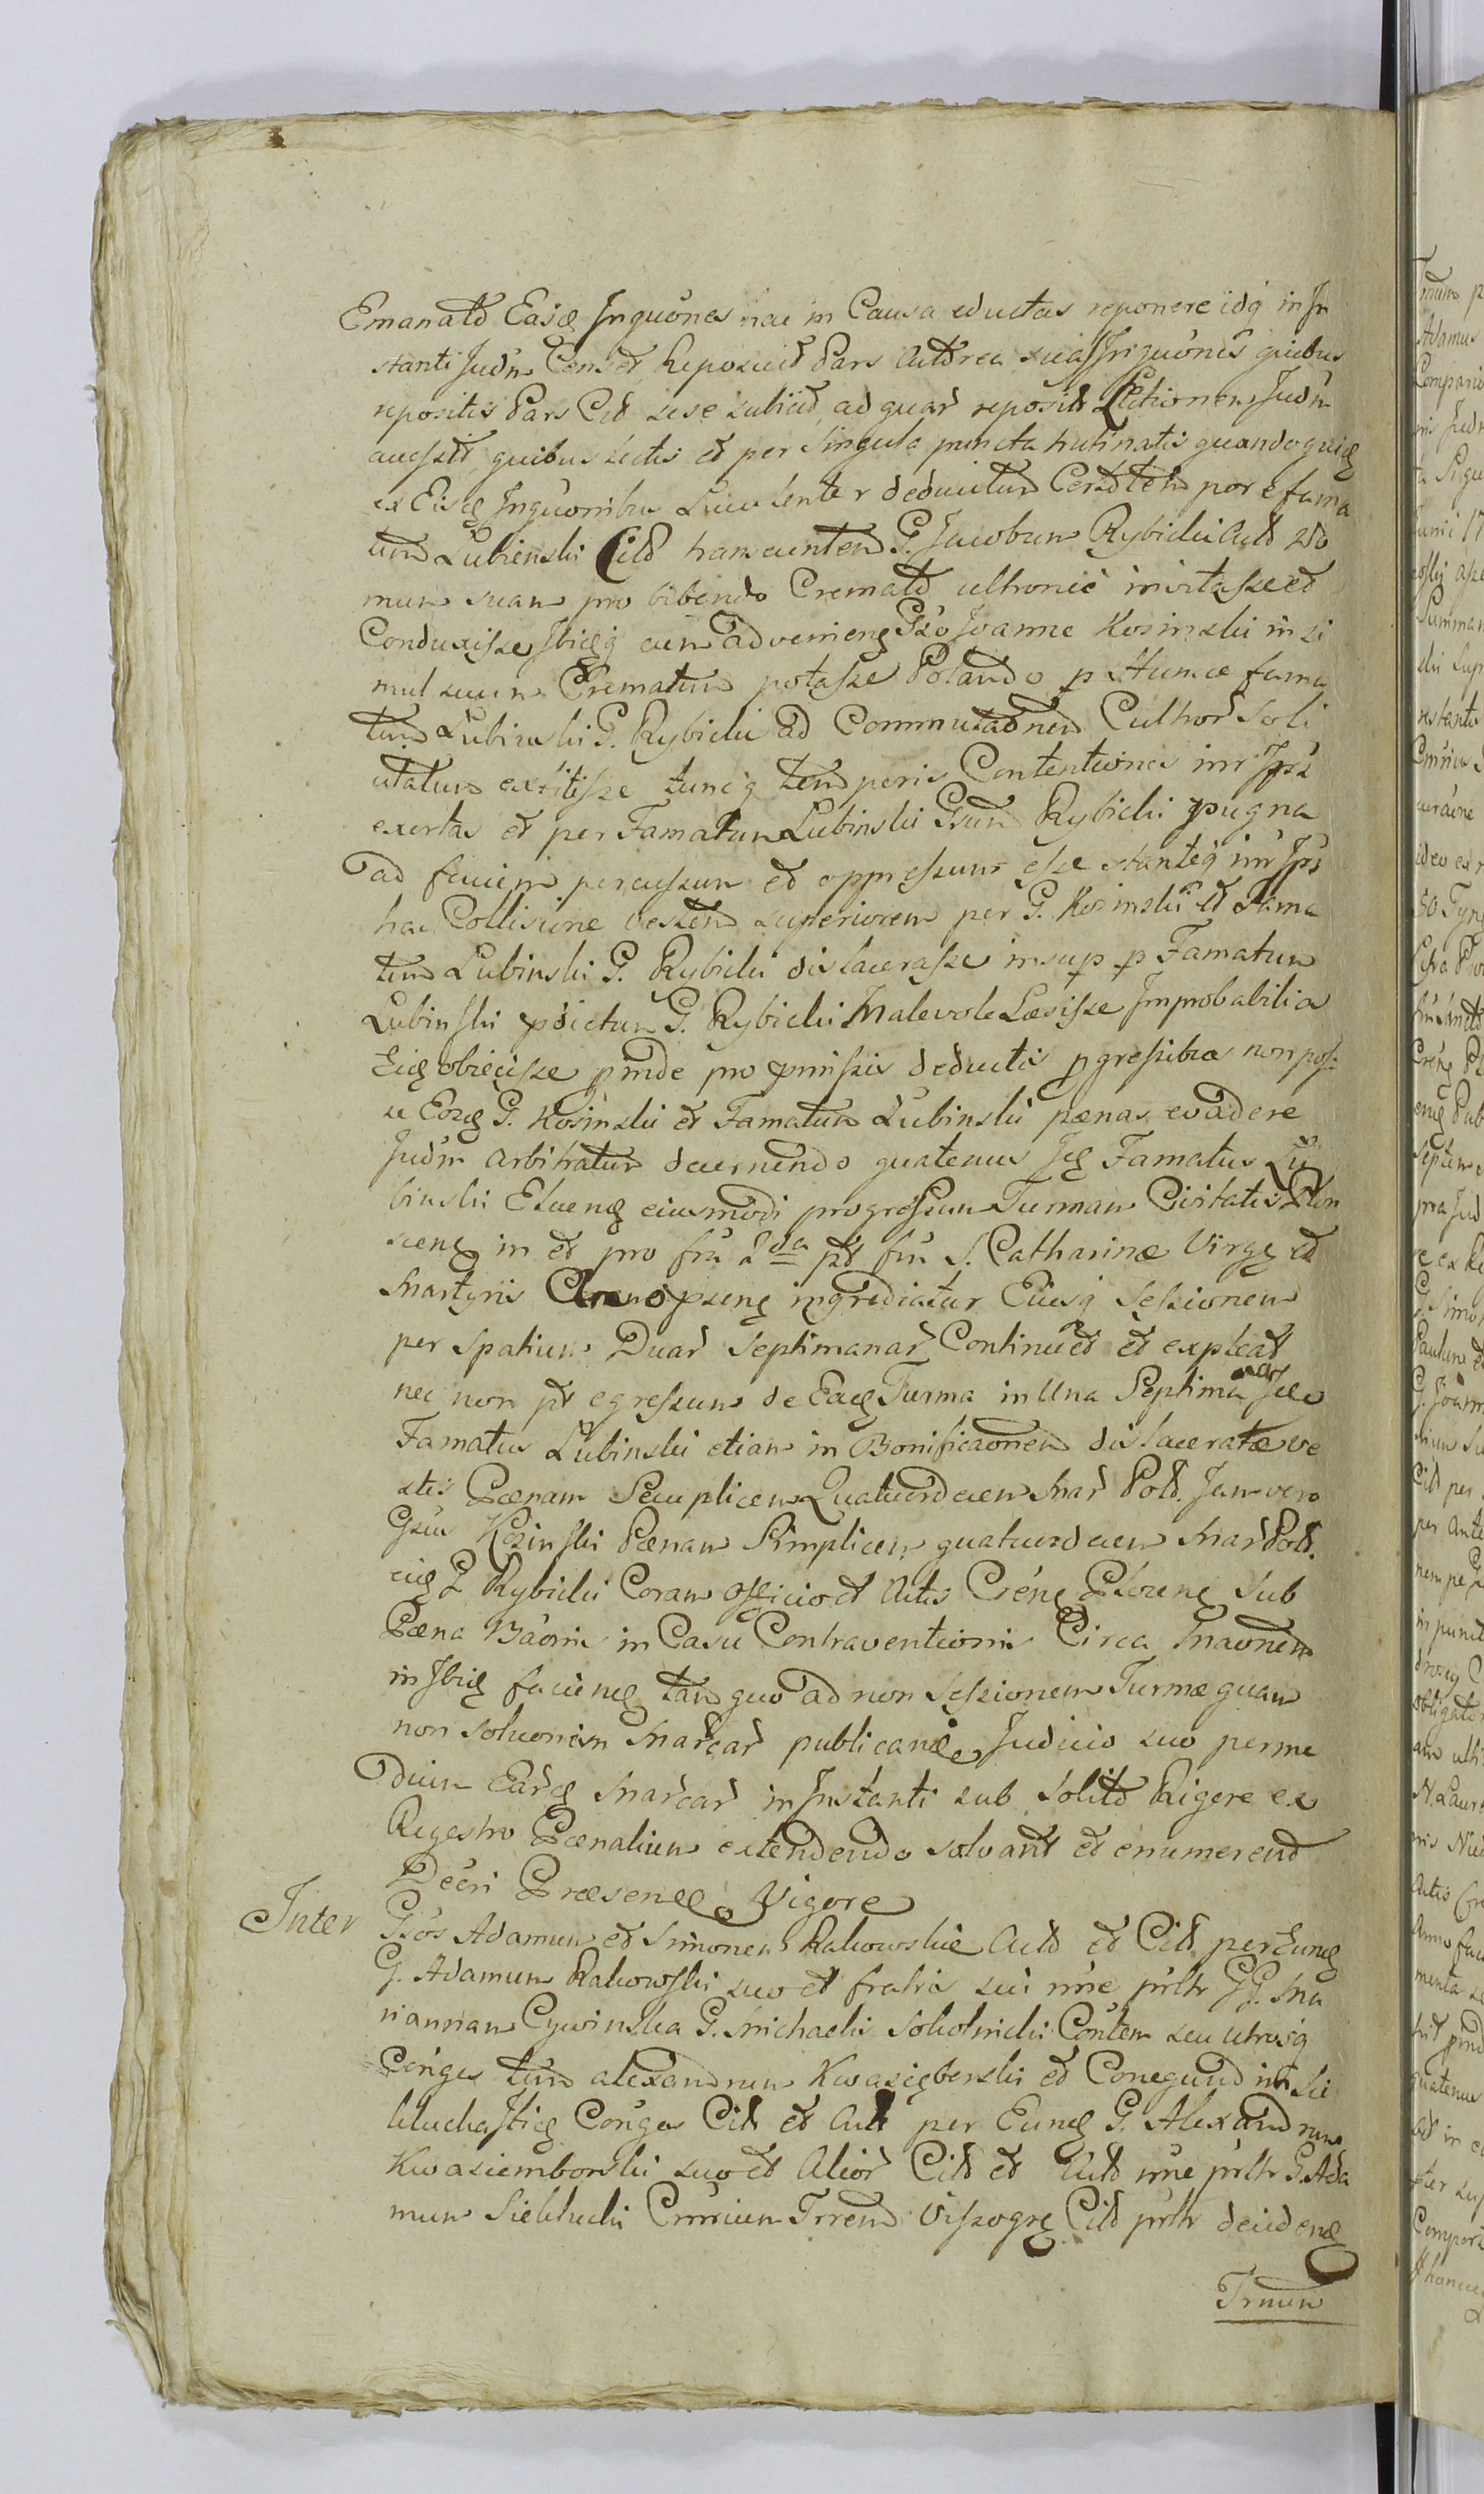 Emanatd Easdę Inquones hac in Causa eductas reponere idq in In
stanti Judm Censet, Reposuit Pars Actorea suas Inquones quibus
repositis Pars Citt sese subiicit, ad quar reposit Lectionem Judm
accessit quibus lectis et per singula puncta trutinatis quandoquidę
ex Eisdę Inquonibus Luculenter deducitur Certotem por e fama
tum Lubienski Citd transeuntem G. Jacobum Rybicki Actd Do
mum suam pro bibendo Crematd ultronie invitasse et
Conduxisse Ibidę q cum adveniens Gso Joanne Kosinski in si
mul suum Crematum potasse Potando p Hunce fama
tum Lubinski G. Rybicki ad Commutaonem Culthor Soli
citatum extitisse tuncq temporis Contentiones intr Ipss
exortas et per Famatum Lubinski Gsum Rybicki pugna
ad faciem percussum et oppressum esse stanteq intr Ips
hac Collisione vestem superiorem per G. Kosinski et Fama
tum Lubinski G. Rybicki dislacerasse insup p Famatum
Lubinski pdictum G. Rybicki Malevole Laesisse Improbabilia
Eidę obiecisse pinde pro pmissis deductis pgressibus non pos
se Eosdę G. Kosinski et Famatum Lubinski pænas evadere
Judm arbitratur decernendo quatenus Idę Famatus Lu
binski Eluendę eiusmodi progressum Turmam Civitatis Plon
scenę in et pro fria 2da pt fm S. Catharinæ Virgę et
Martyris pxenę ingrediatur Eiusq Sessionem
per spatium Duar Septimanar Continuet et expleat
nec non pt egressum de Eadę Turma in Una Septimana Idę
Famatus Lubinski etiam in Bonificaonem dislaceratæ ve
stis Pænam Quatuordecem Mar Pold. Jam vero
Gsus Kosinski Pænam Simplicem quatuordecem Mar Pold.
eidę G Rybicki Coram Officio et Actis Crenę Plonenę sub
Pæna Baonis in Casu Contraventionis Circa Inaonem
in Ibidę faciendę tam quo ad non Sessionem Turmæ quam
non soluonem Marcar publicandę Judicio suo perme
dium Eardę Marcar in Instanti sub Solito Rigore ex
Regestro Pænalium extendendo solvant et enumerent
Decri Præsentę Vigore
Inter Gsos Adamum et Simonem Rakowskie Actd et Citt per Eundę
G. Adamum Rakowski suo et fratris sui nne prltr GG. Ma
riannam Cywinska G. Michaelis Sokolnicki Contem seu utrosq
Conges tum alexandrum Kwasięborski et Conegund intr Sie
kluckaStię Conges Citt et Actt per Eundę G. Alexandrum
Kwasiemborski suo et Alior Citt et Actt nne prltr G. Ada
mum Sieklucki Cmricum Trrem Viszogrę Citd prltr decidendę
Trmum